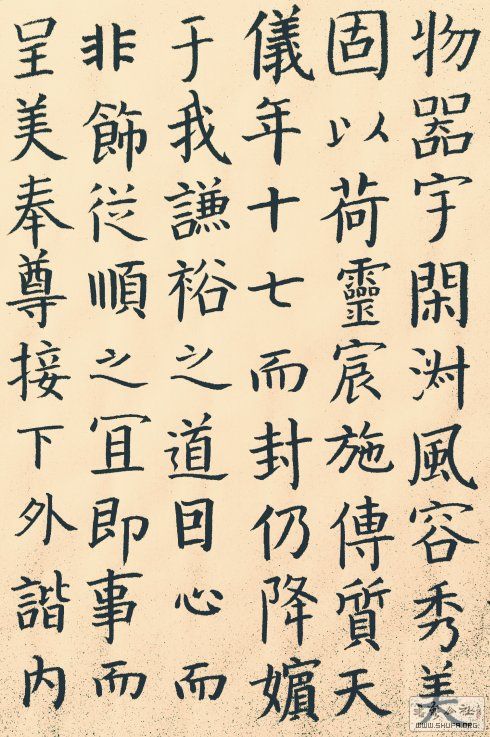 物器宇閑淑風容秀美
固以荷靈宸施傳質天
儀年十七而封仍降嬪
于我謙裕之道因心而
非飾從順之宜即事而
呈美奉尊接下外諧内
WWW.SHUFA.ORG